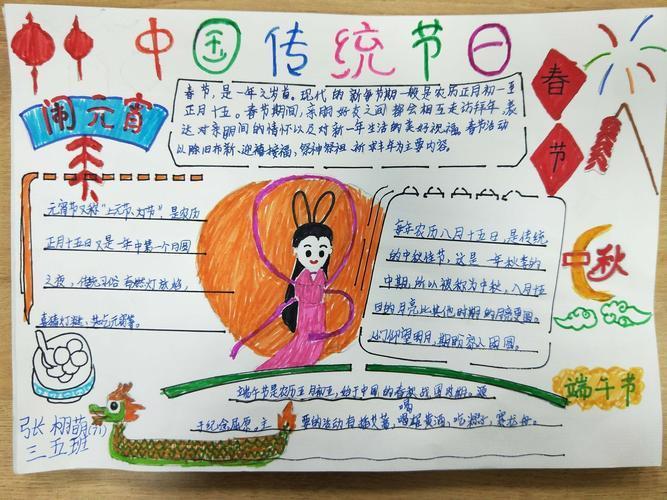 中国传统节日
春节,是一年之岁首。现代的新春节期一般是农历正月初一至
正月十五。春节期间,亲朋好友之间都会相互走访拜年,表
达对亲朋间的情怀以及对新一年生活的美好祝福。春节活动
以除旧布新、迎禧接福、祭神祭祖、祈求丰年为主要内容。
春
节
闹元宵
元宵节又称“上元节、灯节”,是农历
正月十五日又是一年中第一个月圆
之夜,传统习俗有燃灯放焰、
喜猜灯谜、共吃元宵等。
每年农历八月十五日,是传统
的中秋佳节,这是一年秋季的
中期,所以被称为中秋。八月十五
日的月亮比其他时期的月亮更圆。
人们仰望明月,期盼家人团圆。
中秋
端午节
端午节是农历五月初五,始于中国的春秋战国时期。源
于纪念屈原。主要的活动有插艾蒿,喝雄黄酒,吃粽子,赛龙舟。
张栩萌(71)
三五班